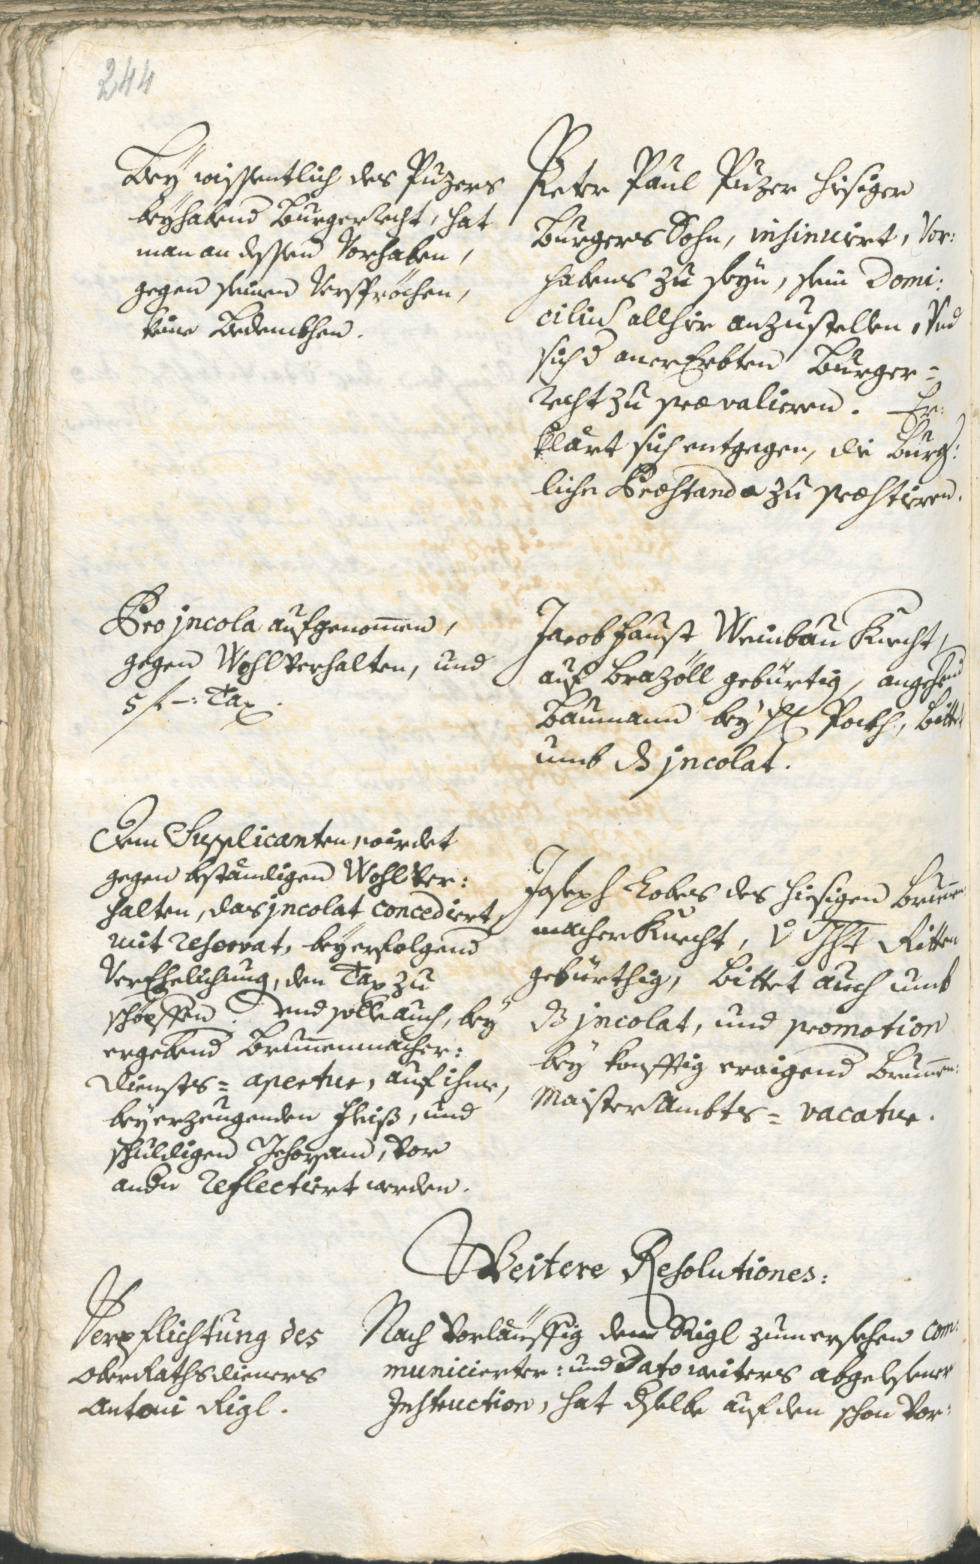 244
Bey wissentlich des Puzers
beyhabend Burgerrecht, hat
man an dessen Vorhaben,
gegen seinen Versprechen,
keine Bedenckhen.
Peter Paul Puzer hiesiger
Burgers Sohn, insinuirt, Vor:
habens zu seyn, sein Domi:
cilium allhier anzustellen, Und
sich d anererbten Burger=
recht zu prævalieren. Er:
klärt sich entgegen, die Burg:
liche Præstanda zu præstieren.
Pro jncola aufgenommen,
gegen Wohlverhalten, und
5 f –: Tax.
Jacob Faust Weinbau Knecht,
aus Brazöll gebürtig, angehend
Baumann bey H Pockh, Bittet
umb dz jncolat.
Dem Supplicanten, wirdet
gegen beständigen Wohlver:
halten, das jncolat concediert,
mit reservat, bey erfolgend
Verehelichung, den Tax zu
schöpffen. Und solle auch, bey
ergebend Brunnenmacher:
Diensts= apertur, auf ihme,
bey erzeugenden Fleiß, und
schuldigen Gehorsam, vor
andn reflectiert werden.
Joseph Lobes des hiesigen Brunnen
macher Knecht, Ritten
gebürthig, Bittet auch umb
dz jncolat, und promotion
bey konfftig eraigend Brunnen:
Maister Ambts= vacatur.
Weitere Resolutiones:
Verpflichtung des
Ober Raths dieners
Antoni Rigl.
Nach vorläuffig dem Rigl zumersehen com:
municierter: und Dato weiters abgelesener
Instruction, hat dselbe auf den schon vor: